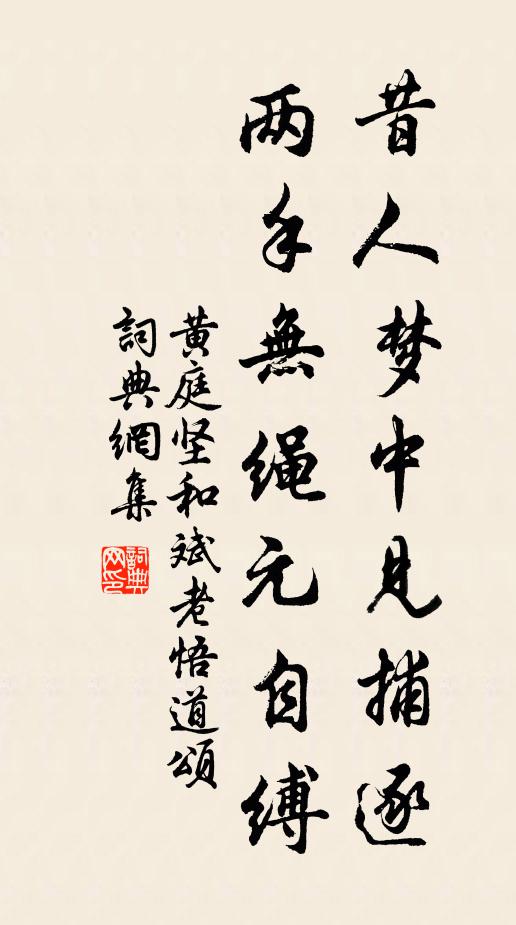 昔人梦中见捕逐
两手無绳元自缚
黄庭坚和斌老悟道頌
詞典網集
詞典网印